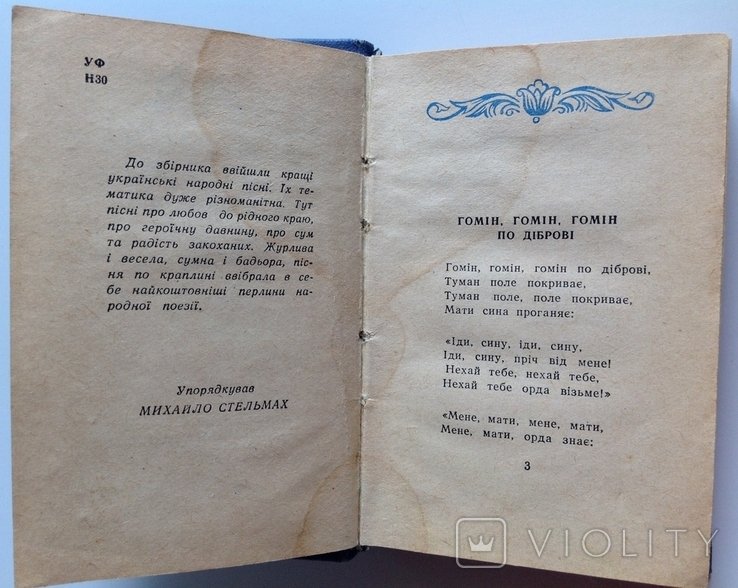 УФ
Н30
До збірника ввійшли кращі
українські народні пісні. Їх те-
матика дуже різноманітна. Тут
пісні про любов до рідного краю,
про героїчну давнину, про сум
та радість закоханих. Журлива
і весела, сумна і бадьора, піс-
ня по краплині ввібрала в се-
бе найкоштовніші перлини на-
родної поезії.
Упорядкував
МИХАЙЛО СТЕЛЬМАХ
ГОМІН, ГОМІН, ГОМІН
ПО ДІБРОВІ
Гомін, гомін, гомін по діброві,
Туман поле покриває,
Туман поле, поле покриває,
Мати сина проганяє:
«Іди, сину, іди, сину,
Іди, сину, пріч від мене!
Нехай тебе, нехай тебе,
Нехай тебе орда візьме!»
«Мене, мати, мене, мати,
Мене, мати, орда знає:
3
VIOLITY